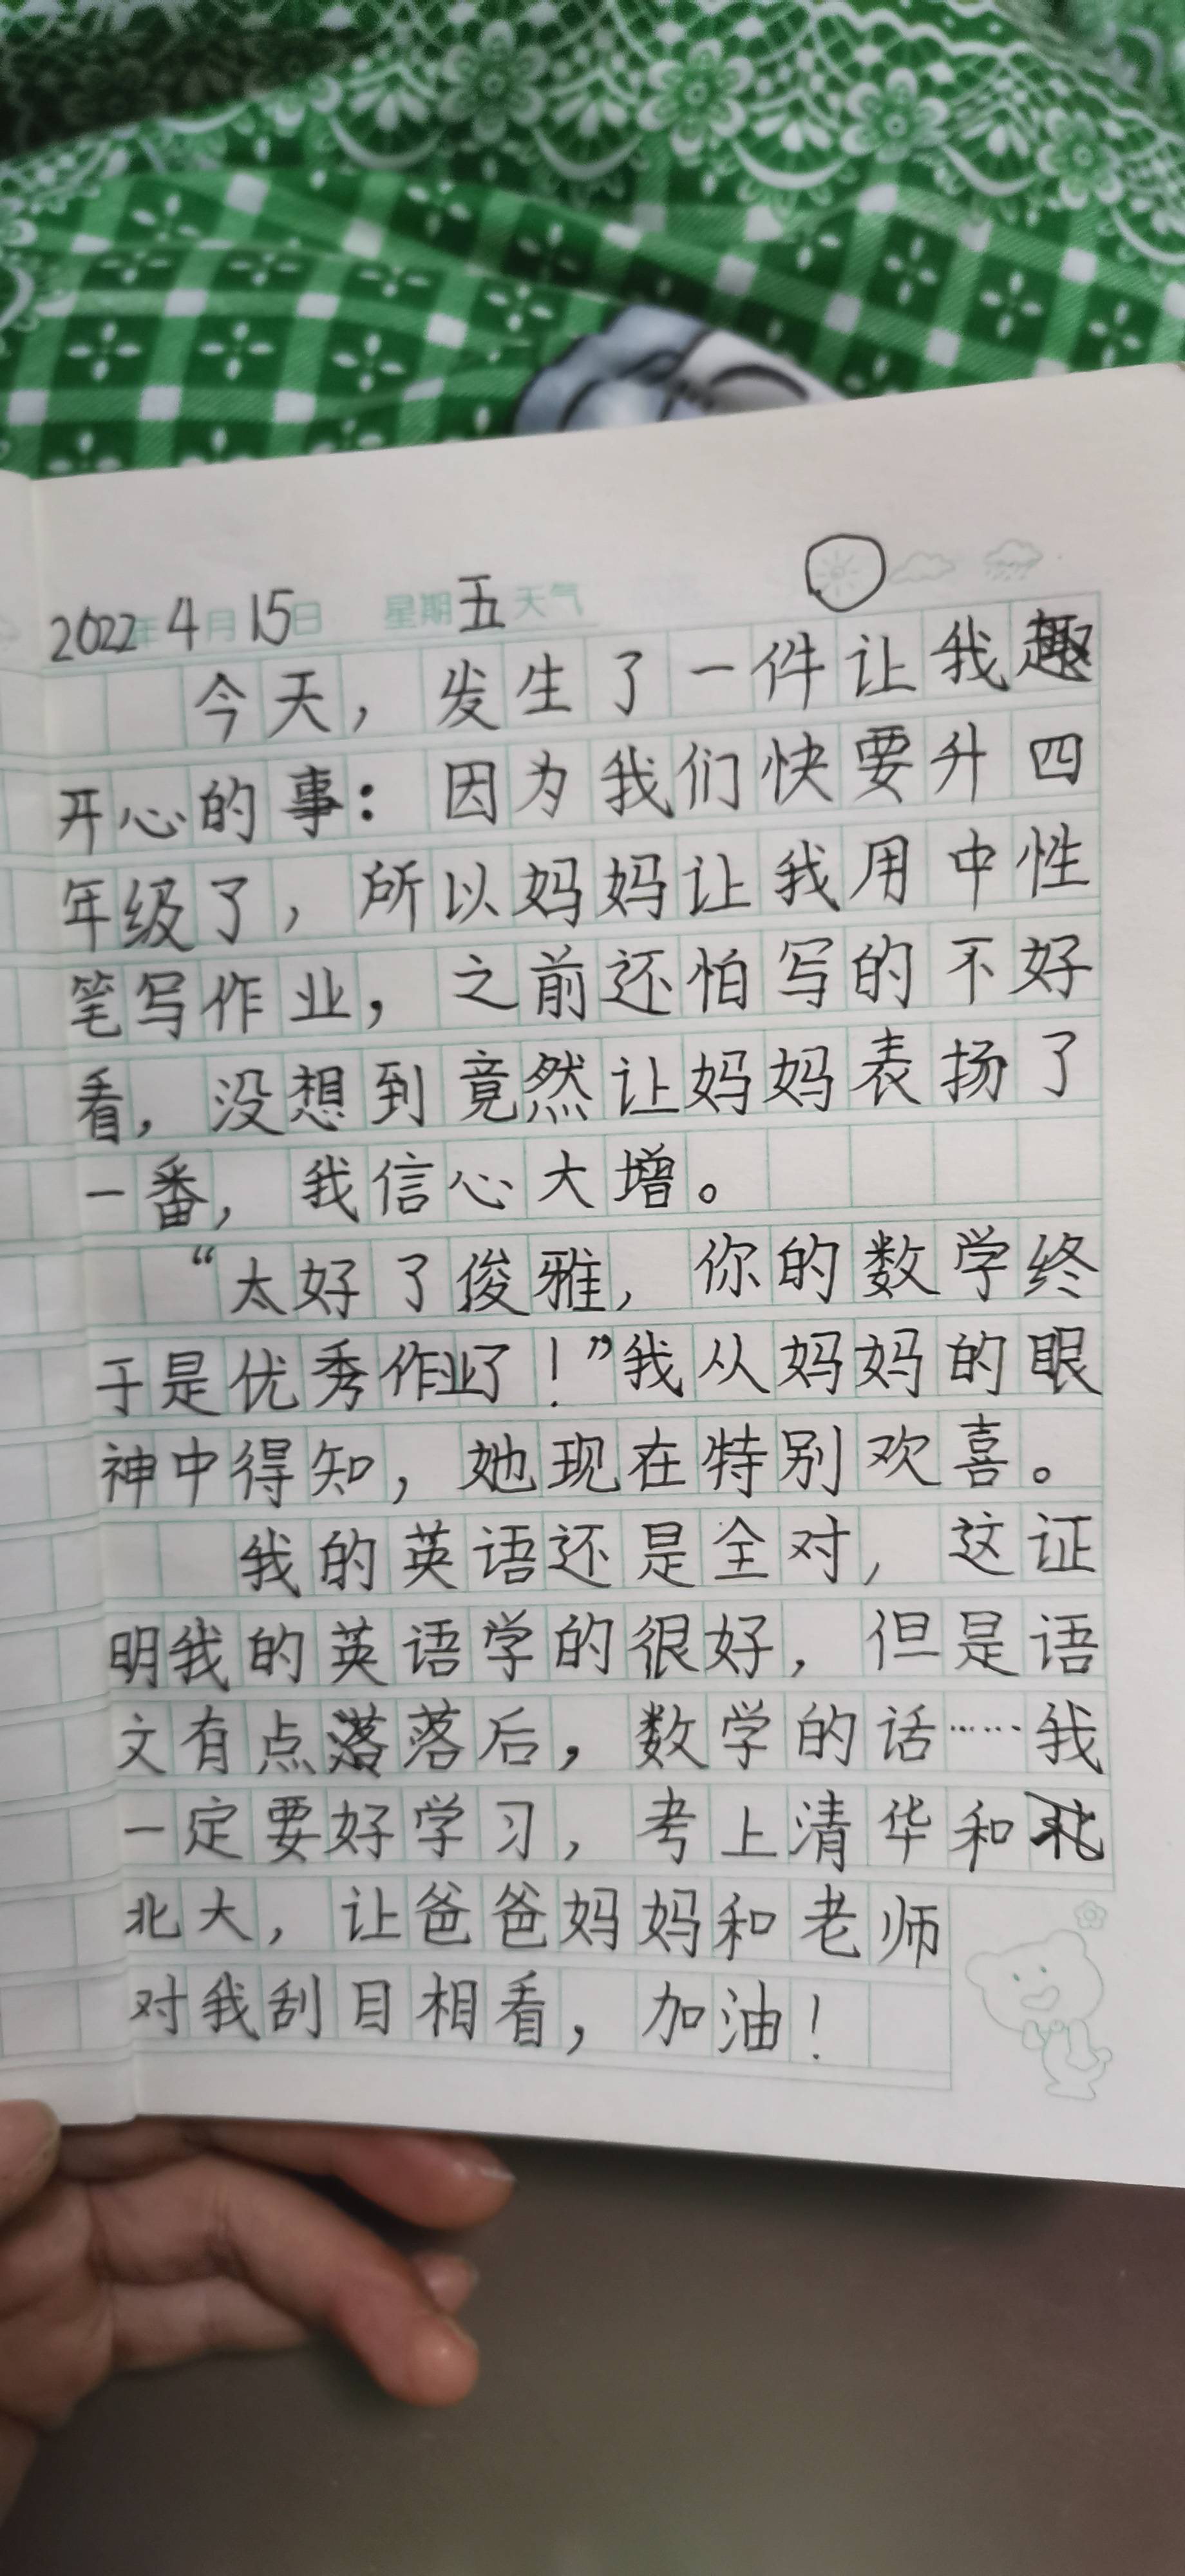 2022年4月15日 星期五天气
今天，发生了一件让我
开心的事：因为我们快要升四
年级了，所以妈妈让我用中性
笔写作业，之前还怕写的不好
看，没想到竟然让妈妈表扬了
一番，我信心大增。
“太好了俊雅，你的数学终
于是优秀作业了！”我从妈妈的眼
神中得知，她现在特别欢喜。
我的英语还是全对，这证
明我的英语学的很好，但是语
文有点落后，数学的话……我
一定要好学习，考上清华和
北大，让爸爸妈妈和老师
对我刮目相看，加油！